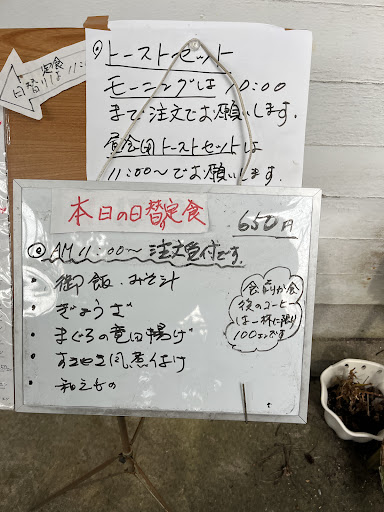 日替 定食
りは 11:00
◎トーストセット
モーニングは10:00
まで注文でお願いします。
昼食用トーストセットは
11:00〜でお願いします。
本日の日替定食
650円
◎AM 11:00〜 注文受付です。
・御飯・みそ汁
・ぎょうざ
・まぐろの竜田揚げ
・すきやき風煮付け
・和えもの
食前か食
後のコーヒー
は一杯に限り
100円です